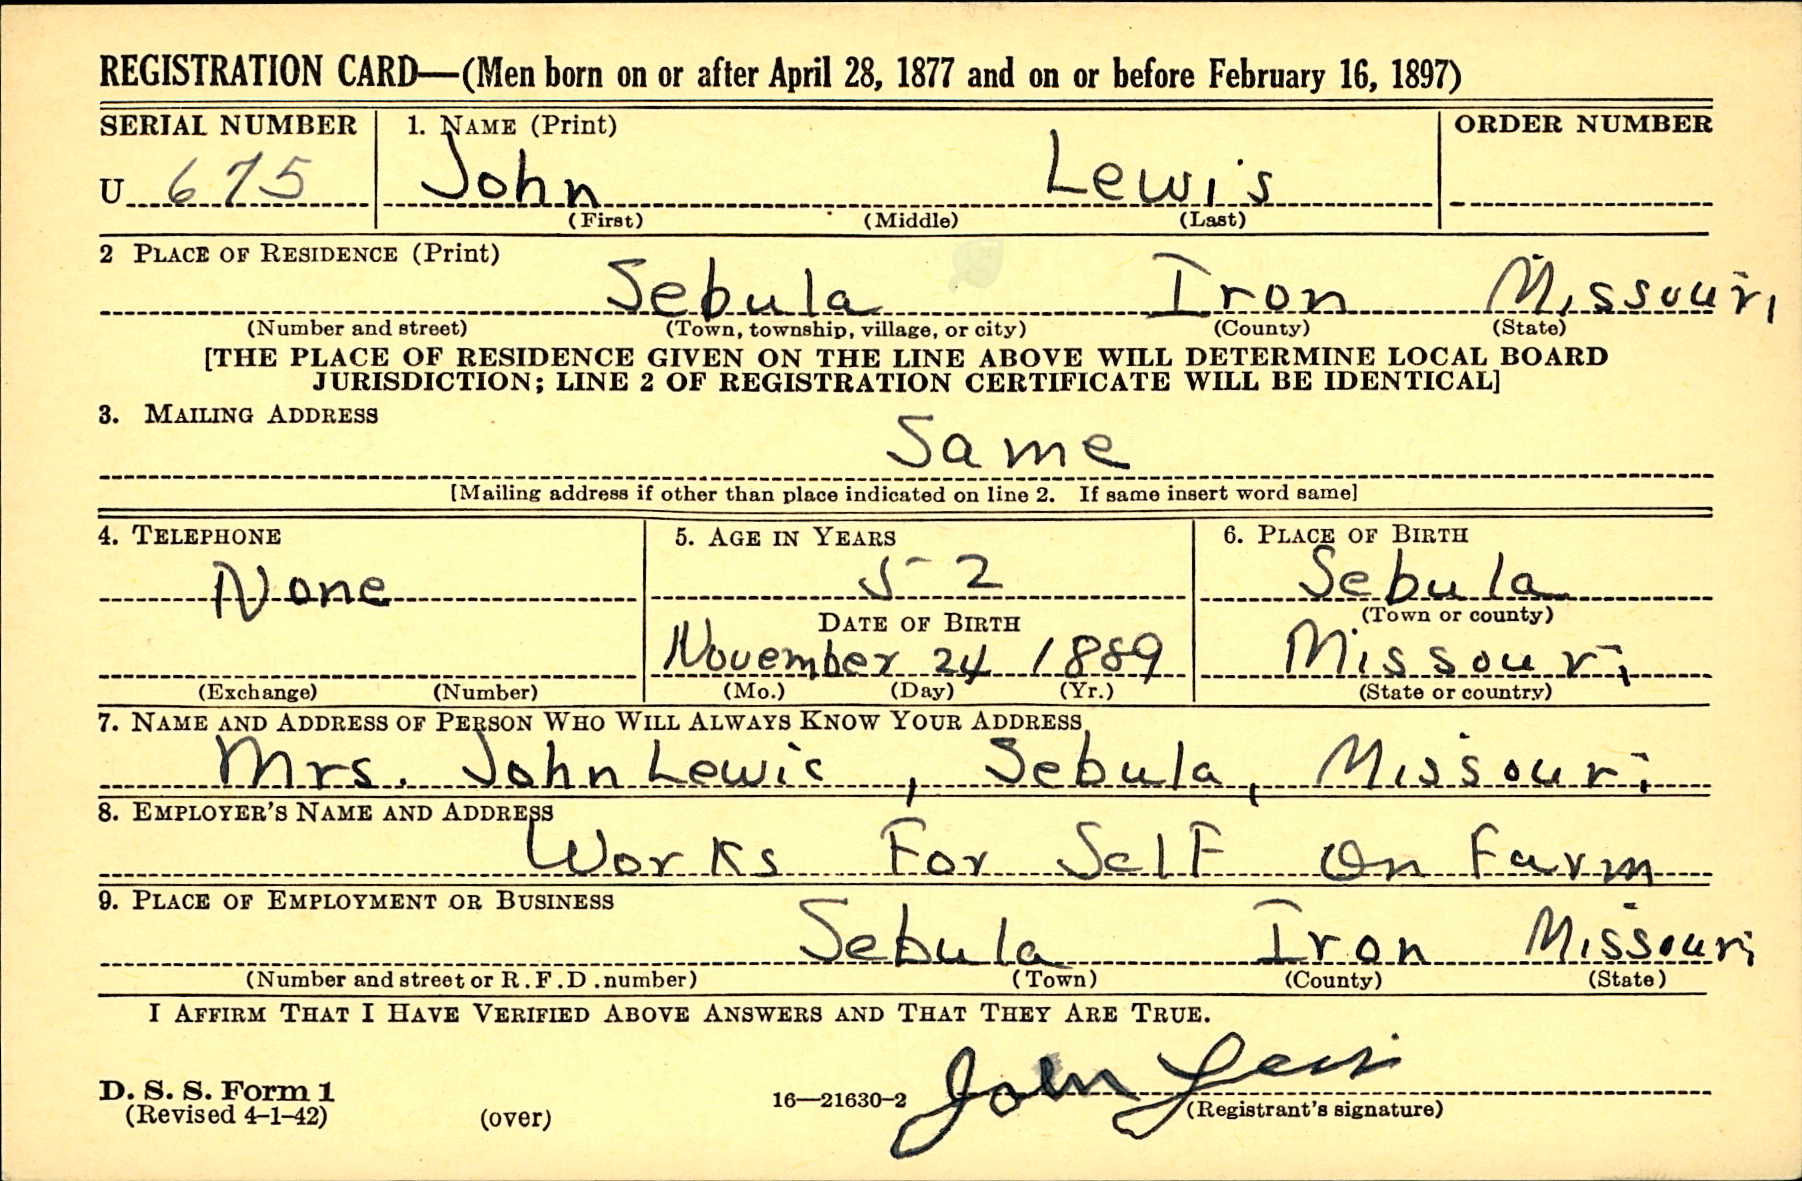 REGISTRATION CARD—(Men born on or after April 28, 1877 and on or before February 16, 1897)
SERIAL NUMBER 1. NAME (Print) ORDER NUMBER
U 675 John Lewis
(First) (Middle) (Last)
2 PLACE OF RESIDENCE (Print)
Sebula Iron Missouri
(Number and street) (Town, township, village, or city) (County) (State)
[THE PLACE OF RESIDENCE GIVEN ON THE LINE ABOVE WILL DETERMINE LOCAL BOARD
JURISDICTION; LINE 2 OF REGISTRATION CERTIFICATE WILL BE IDENTICAL]
3. MAILING ADDRESS
Same
[Mailing address if other than place indicated on line 2. If same insert word same]
4. TELEPHONE 5. AGE IN YEARS 6. PLACE OF BIRTH
None 52 Sebula
(Town or county)
DATE OF BIRTH
November 24 1889 Missouri
(Exchange) (Number) (Mo.) (Day) (Yr.) (State or country)
7. NAME AND ADDRESS OF PERSON WHO WILL ALWAYS KNOW YOUR ADDRESS
Mrs. John Lewis, Sebula, Missouri
8. EMPLOYER'S NAME AND ADDRESS
Works For Self On Farm
9. PLACE OF EMPLOYMENT OR BUSINESS
Sebula Iron Missouri
(Number and street or R.F.D. number) (Town) (County) (State)
I AFFIRM THAT I HAVE VERIFIED ABOVE ANSWERS AND THAT THEY ARE TRUE.
John Lewis
D. S. S. Form 1
(Revised 4-1-42) (over) 16—21630-2 (Registrant's signature)